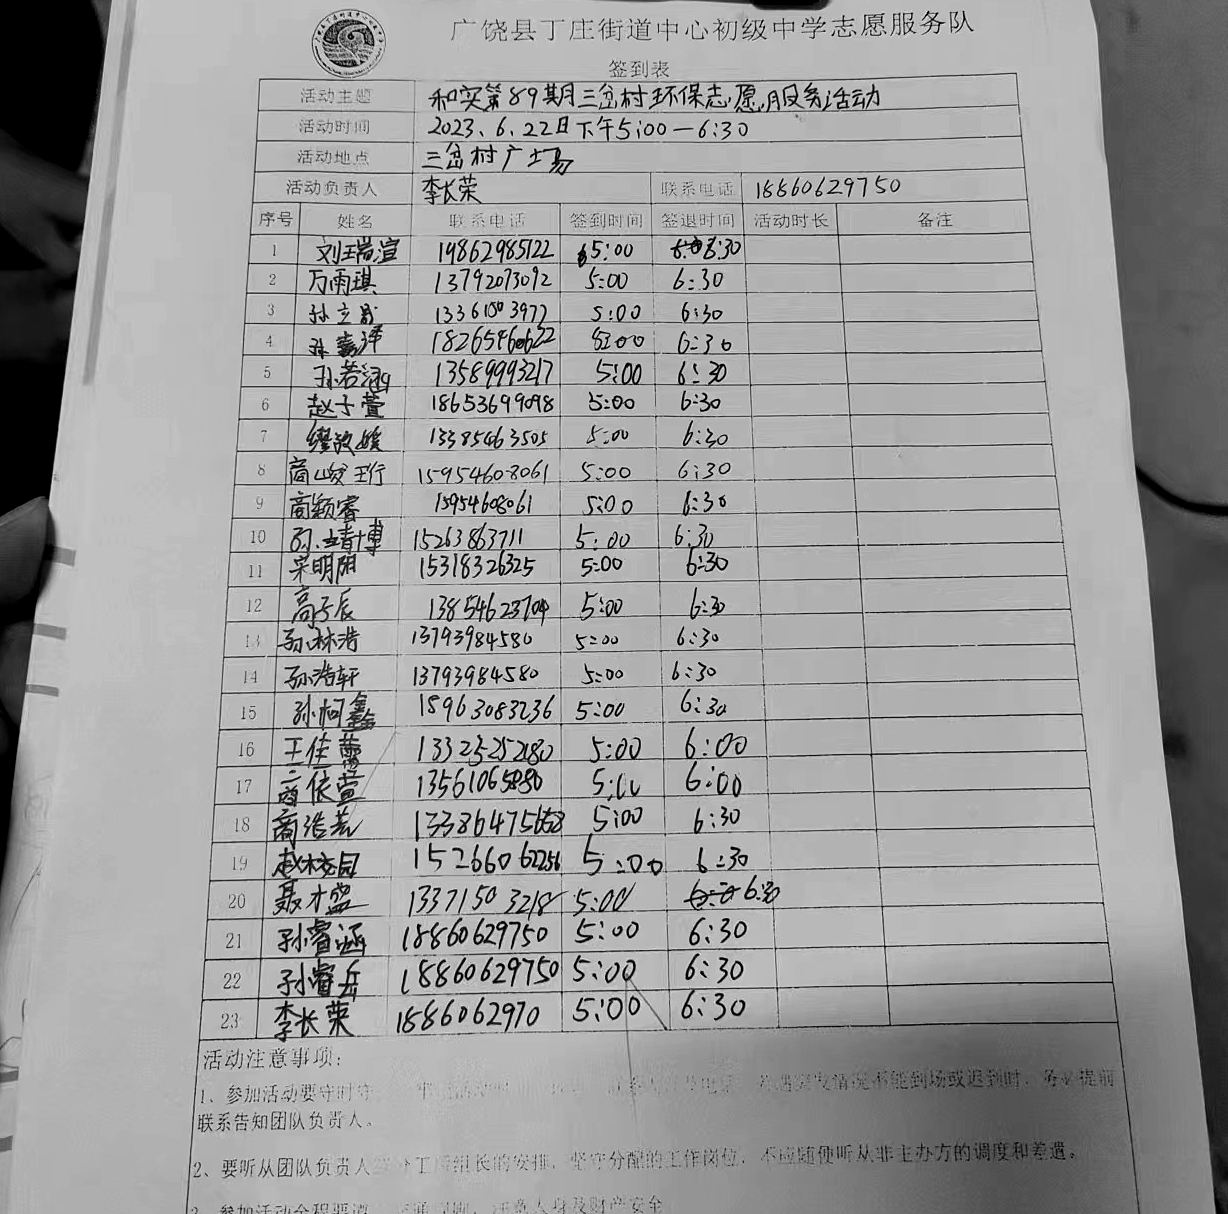 广饶县丁庄街道中心初级中学志愿服务队
签到表
活动主题 和实第89期三岔村环保志愿服务活动
活动时间 2023.6.22日下午5:00—6:30
活动地点 三岔村广场
活动负责人 李长荣 联系电话 18860629750
序号 姓名 联系电话 签到时间 签退时间 活动时长 备注
1 刘瑞渲 19862985122 5:00 6:30
2 万雨琪 13792073092 5:00 6:30
3 孙立 13361503972 5:00 6:30
4 孙嘉泽 5:00 6:30
5 孙若涵 13589993217 5:00 6:30
6 赵子萱 18653699098 5:00 6:30
7 13385463505 5:00 6:30
8 商峻珩 15954608061 5:00 6:30
9 商颖睿 15954608061 5:00 6:30
10 孙靖博 15263863711 5:00 6:30
11 宋明阳 15318326325 5:00 6:30
12 高子辰 13854623704 5:00 6:30
13 孙林浩 13793984580 5:00 6:30
14 孙浩轩 13793984580 5:00 6:30
15 孙柯鑫 18963083236 5:00 6:30
16 王佳蕾 13325252180 5:00 6:00
17 商依萱 5:00 6:00
18 商浩 5:00 6:30
19 赵校园 15266062256 5:00 6:30
20 聂才盟 13371503218 5:00 6:30
21 孙睿涵 18860629750 5:00 6:30
22 孙睿岳 18860629750 5:00 6:30
23 李长荣 1886062970 5:00 6:30
活动注意事项:
1、参加活动要守时守 情况不能到场或迟到时，务必提前
联系告知团队负责人。
2、要听从团队负责人 组长的安排，坚守分配的工作岗位，不应随便听从非主办方的调度和差遣。
3、参加活动全程要 注意人身及财产安全